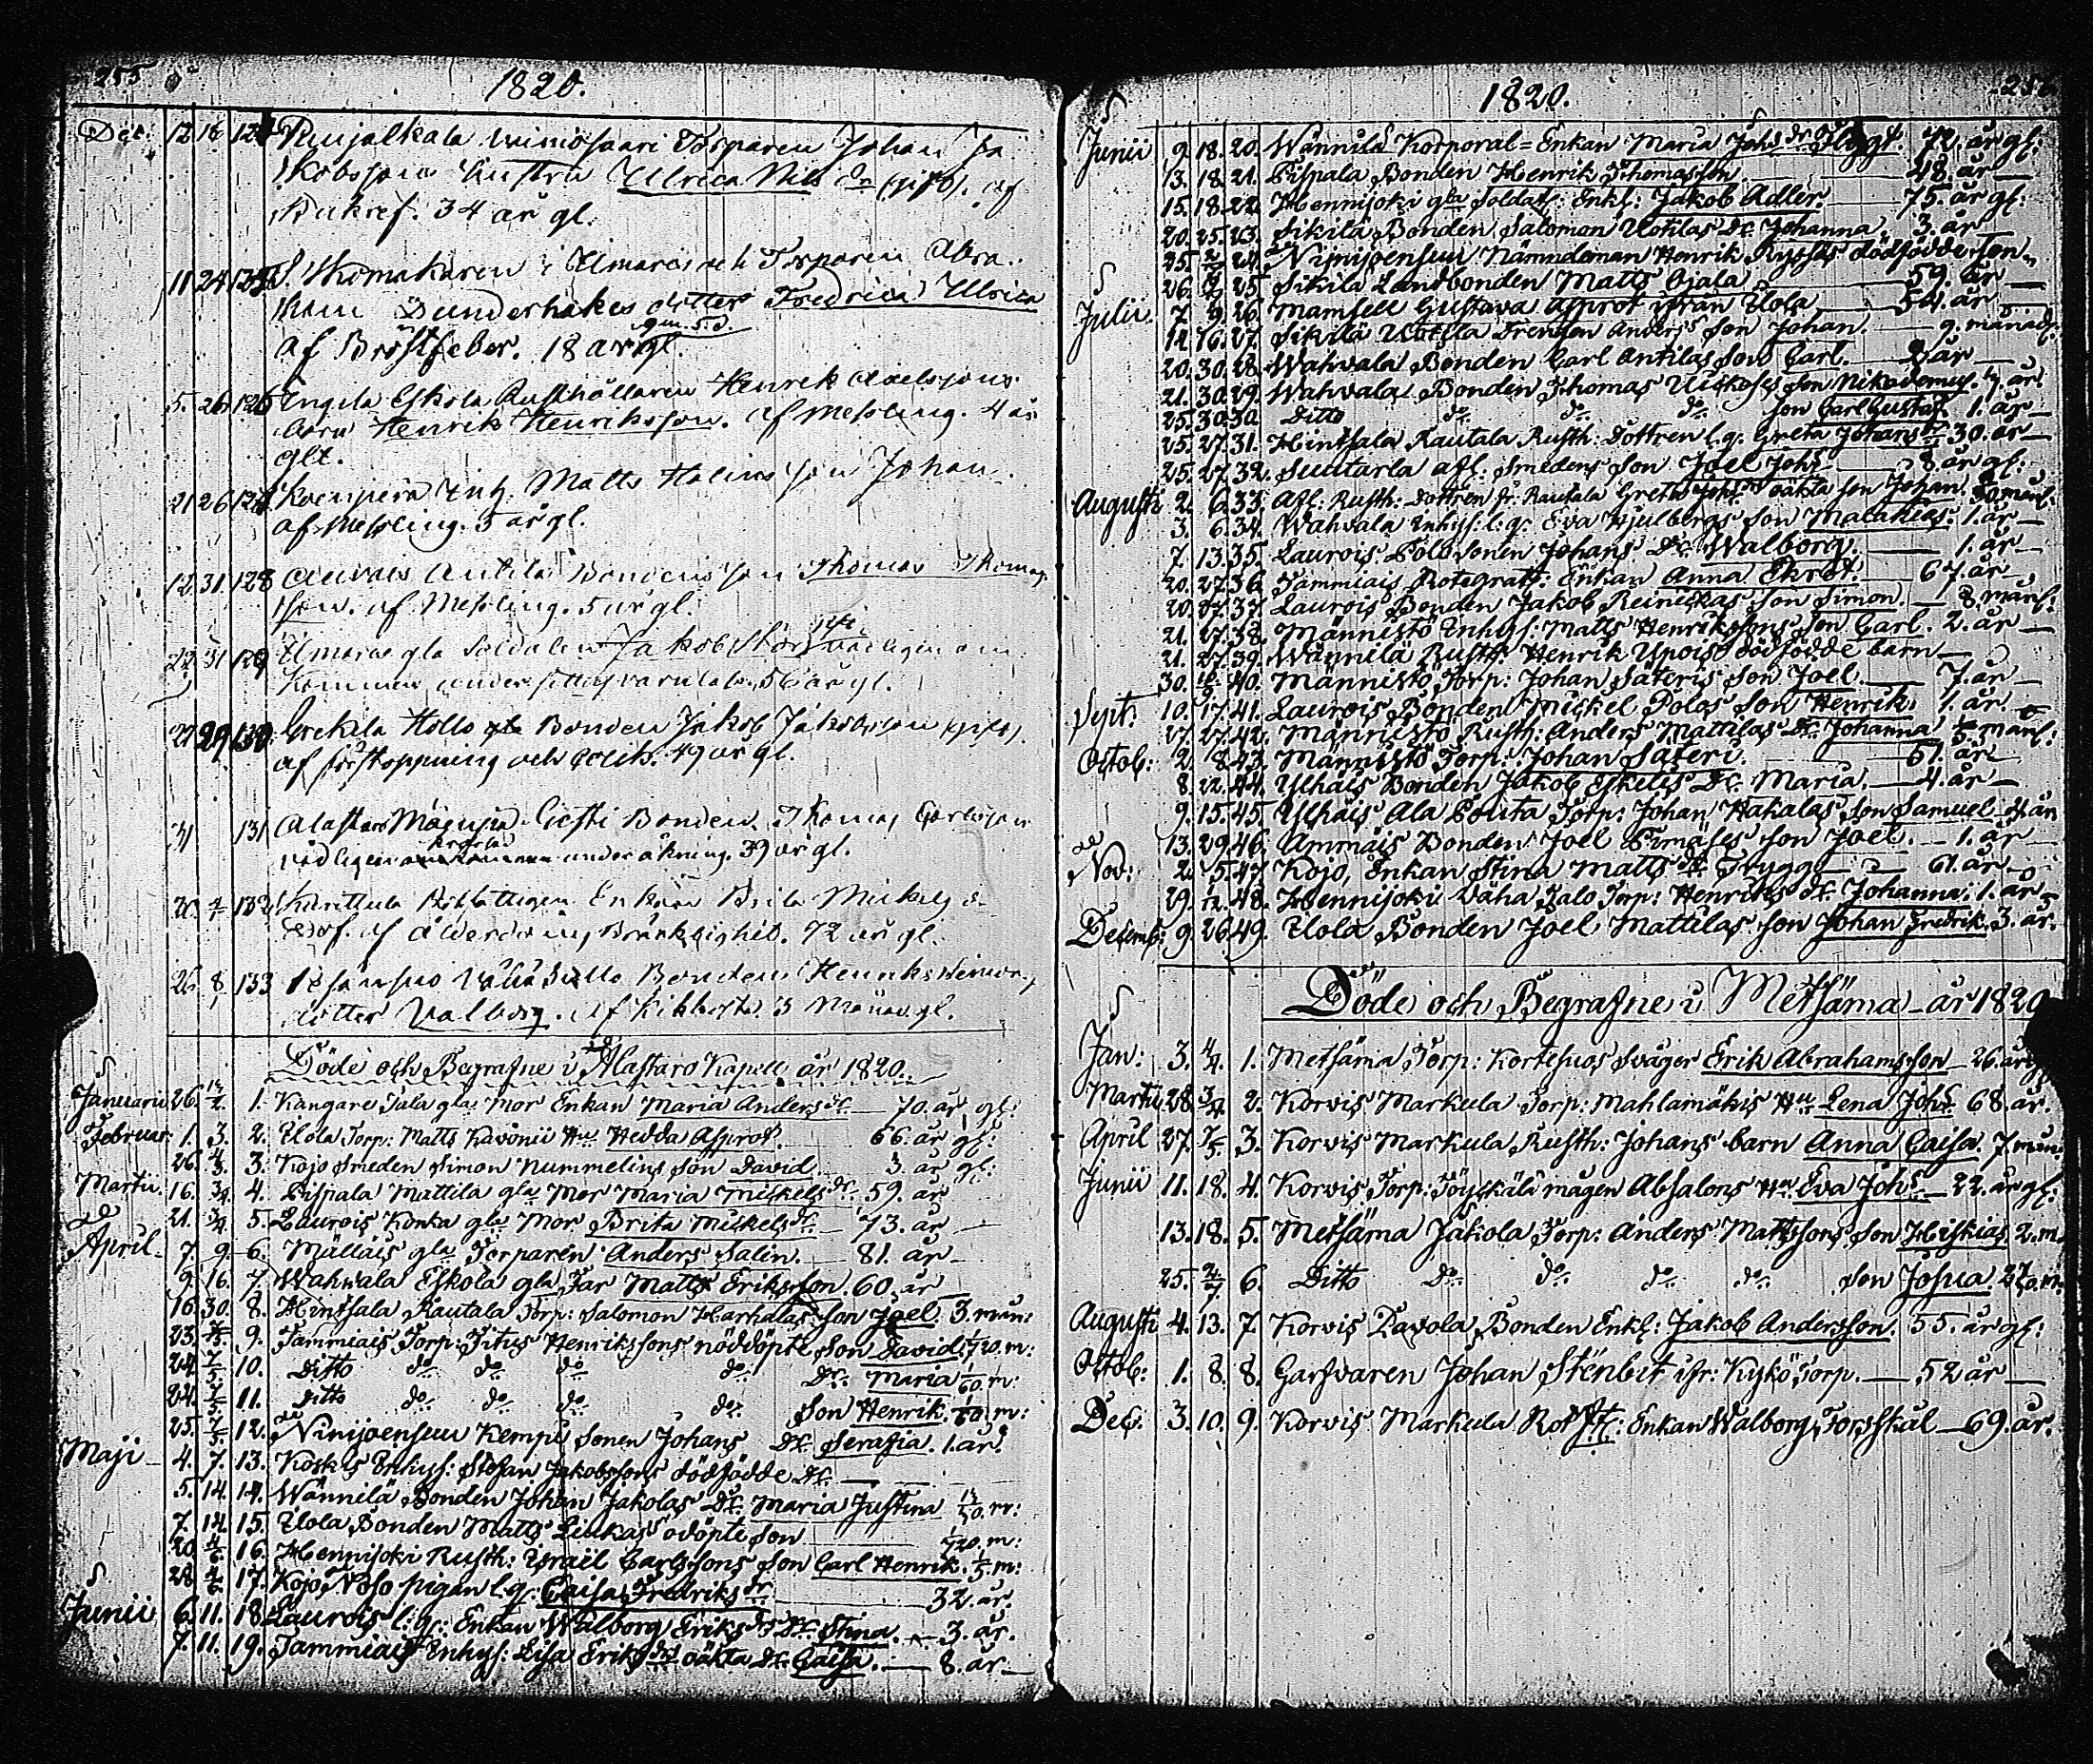 255.
1820.
Dec: 12 16 124 Punjalkala Torparen Johan Ja
kobssons hustru Ulrica Nils dr (gift). af
34 år gl.
11 24 Skomakaren i Ulmarois och Torparen Abra
ham Dunderhakes dotter Fredrica Ulrica
9 m. 5 d.
af Bröstfeber. 18 år gl.
5. 26 126 Engila Eskola Rusthållaren Henrik Axelssons
barn Henrik Henriksson. af Messling. 4 år
glt.
21 26 Koenperä Inh. Matts Halins son Johan
af Messling. 5 år gl.
12 31 128 Antila Bondens son Thomas Thomas
son. af Messling. 5 år gl.
22 31 129 gla Soldaten Jakob Stor vådligen om
kommen under 56 år gl.
29 130 Grekila Hollo Bonden Jakob Jakobsson (gift).
af förstoppning och Colik. 49 år gl.
31 131 Alastaro Mäenpä Gesti Bonden Thomas Carlsson
vådligen under åkning. 39 år gl.
132 Enkan Brita Mickels d
af ålderdoms Bräcklighet. 72 år gl.
26 8/1 133 Bonden Henriks
dotter Valborg. af Kikhosta. 3 Månad. gl.
Döde och Begrafne i Alastaro Kapell år 1820.
Januarii 26. 13/2. 1. Kangare Tala gla Mor Enkan Maria Anders dr. — 70. år gl:
Februar: 1. 3. 2. Uola Torp: Matts Kavonii Hu Hedda Asprot. — 66. år gl:
26. 4/3. 3. Kojo Smeden Simon Nummelins son David. 3. år gl:
Martii. 16. 3/4. 4. Pispala Mattila gla Mor Maria Mickels dr. 59. år
21. 3/4. 5. Laurois Konka gla Mor Brita Mickels dr. — 73. år —
April. 7. 9. 6. Mälläis gla Torparen Anders Salin. — 81. år —
9. 16. 7. Wahvala Eskola gla Far Matts Eriksson. 60. år
16. 30. 8. Hintsala Rautala Torp: Salomon Harhalas son Joel. 3. mån:
23. 7/5. 9. Tammiais Torp: Titus Henrikssons nöddöpte son David 1/20. m:
24. 7/5. 10. Ditto do do do do Dr. Maria 1/60. m:
24. 7/5. 11. Ditto do do do do Son Henrik. 1/60. m:
25. 7/5. 12. Ninijoensuu Kempe sonen Johans Dr. Serafia. 1. år.
Maji — 4. 7. 13. Koskis Enhys: Stefan Jakobssons dödfödde Dr. —
5. 14. 14. Wännilä Bonden Johan Jakolas Dr. Maria Justina m:
7. 14. 15. Uola Bonden Matts Leukas odöpte son 1/20. m:
20 4/6. 16. Hennijoki Rusth: Israel Carlssons son Carl Henrik. 1/5. m:
28. 4/6. 17. Kojo Noso pigan l. q. Caisa Fredriks dr. 32. år.
Junii 6. 11. 18. Laurois l: q: Enkan Walborg Eriks dr Dr. Stina. — 3. år.
7. 11. 19. Tammiais Enhys: Lisa Eriks dr oäkta Dr. Caisa. — 8. år —
1820.
Junii 9. 18. 20. Wännilä Korporal=Enkan Maria Johs dr Flygt. 72. år gl:
13. 18. 21. Pispala Bonden Henrik Thomasson. — 48. år —
15. 18. 22. Hennijoki gla Soldat: Enkl: Jakob Adler. — 75. år gl:
20. 25. 23. Sikilä Bonden Salomon Uotilas Dr. Johanna. 3. år —
25. 2/7. 24. Ninijoensuu Nämndeman Henrik Ryssäs dödfödde son.
26. 25. Sikilä Landbonden Matts Ojala — 59. år —
Julii. 7. 9. 26. Mamsell Gustava Asprot ifrån Uola — 54. år —
14. 16. 27. Sikilä Uotila Drengen Anders's son Johan. — 9. månad:
20. 30. 28. Wahvala Bonden Carl Antilas son Carl. — 2. år —
21. 30. 29. Wahvala Bonden Thomas Uitkoses son Nikodemus. 4. år.
25. 30. 30. Ditto do do do son Carl Gustaf. 1. år —
25. 27. 31. Hintsala Rautala Rusth: Dottren l. q. Greta Johans dr 30. år —
25. 27. 32. Suutarla afl: Smedens son Joel Johs — 8. år gl:
Augusti 2. 6. 33. Afl: Rusth: Dottren fr: Rautala Greta Johs dr oäkta son Johan. mån:
3. 6. 34. Wahvala Inhys: l: q: Eva Hjulbergs son Malakias. 1. år —
7. 13. 35. Laurois Polo sonen Johans Dr. Walborg. — 1. år —
20. 27. 36. Tammiais Rotegrats: Enkan Anna Ekrot. — 67. år —
20. 27. 37. Laurois Bonden Jakob Reinickas son Simon. — 8. mån:
21. 27. 38. Männistö Enhys: Matts Henrikssons son Carl. 2. år —
21. 27. 39. Wännilä Rusth: Henrik Upois dödfödde barn —
30. 40. Männistö Torp: Johan Säteris son Joel. — 7. år —
Sept: 10. 17. 41. Laurois Bonden Mickel Polos son Henrik. 1. år. —
17. 27. 42. Männistö Rusth: Anders Mattilas Dr. Johanna mån:
Octob: 2. 8. 43. Männistö Torp: Johan Säteri. — 51. år —
8. 22. 44. Ylhäis Bonden Jakob Eskelis Dr. Maria. — 4. år —
9. 15. 45. Ylhäis Ala Pouta Torp: Johan Hakalas son Samuel. 4. år
13. 29. 46. Ammäis Bonden Joel Pimäses son Joel. — 1. år —
Nov: 2. 5. 47. Kojo, Enkan Stina Matts dr Trygg — 61. år —
29. 48. Hennijoki Väha Jalo Torp: Henriks Dr. Johanna. 1. år
Decemb: 9. 26. 49. Uola Bonden Joel Mattilas son Johan Fredrik. 3. år.
Döde och Begrafne i Metsäma — år 1820
Jan: 3. 4/4. 1. Metsäma Torp: Kortesuos Svåger Erik Abrahamsson — 26. år gl:
Martii 28. 3/4. 2. Korvis Markula Torp: Mahlamäkis Hu Lena Johs 68. år.
April 27. 7/5. 3. Korvis Markula Rusth: Johans barn Anna Caisa. 7. mån:
Junii 11. 18. 4. Korvis Torp: Töyskälä mågen Absalons Hu Eva Johs — 22. år gl:
13. 18. 5. Metsäma Jakola Torp: Anders Mattssons son Hiskias. 2. m.
25. 2/7. 6. Ditto do do do do son Josua
Augusti 4. 13. 7. Korvis Davola Bonden Enkl: Jakob Andersson. 55. år gl:
Octob: 1. 8. 8. Garfvaren Johan Stenbit ifr: Kykö Torp. — 52 år —
Dec: 3. 10. 9. Korvis Markula Rot ft: Enkan Walborg Torsskål — 69. år.